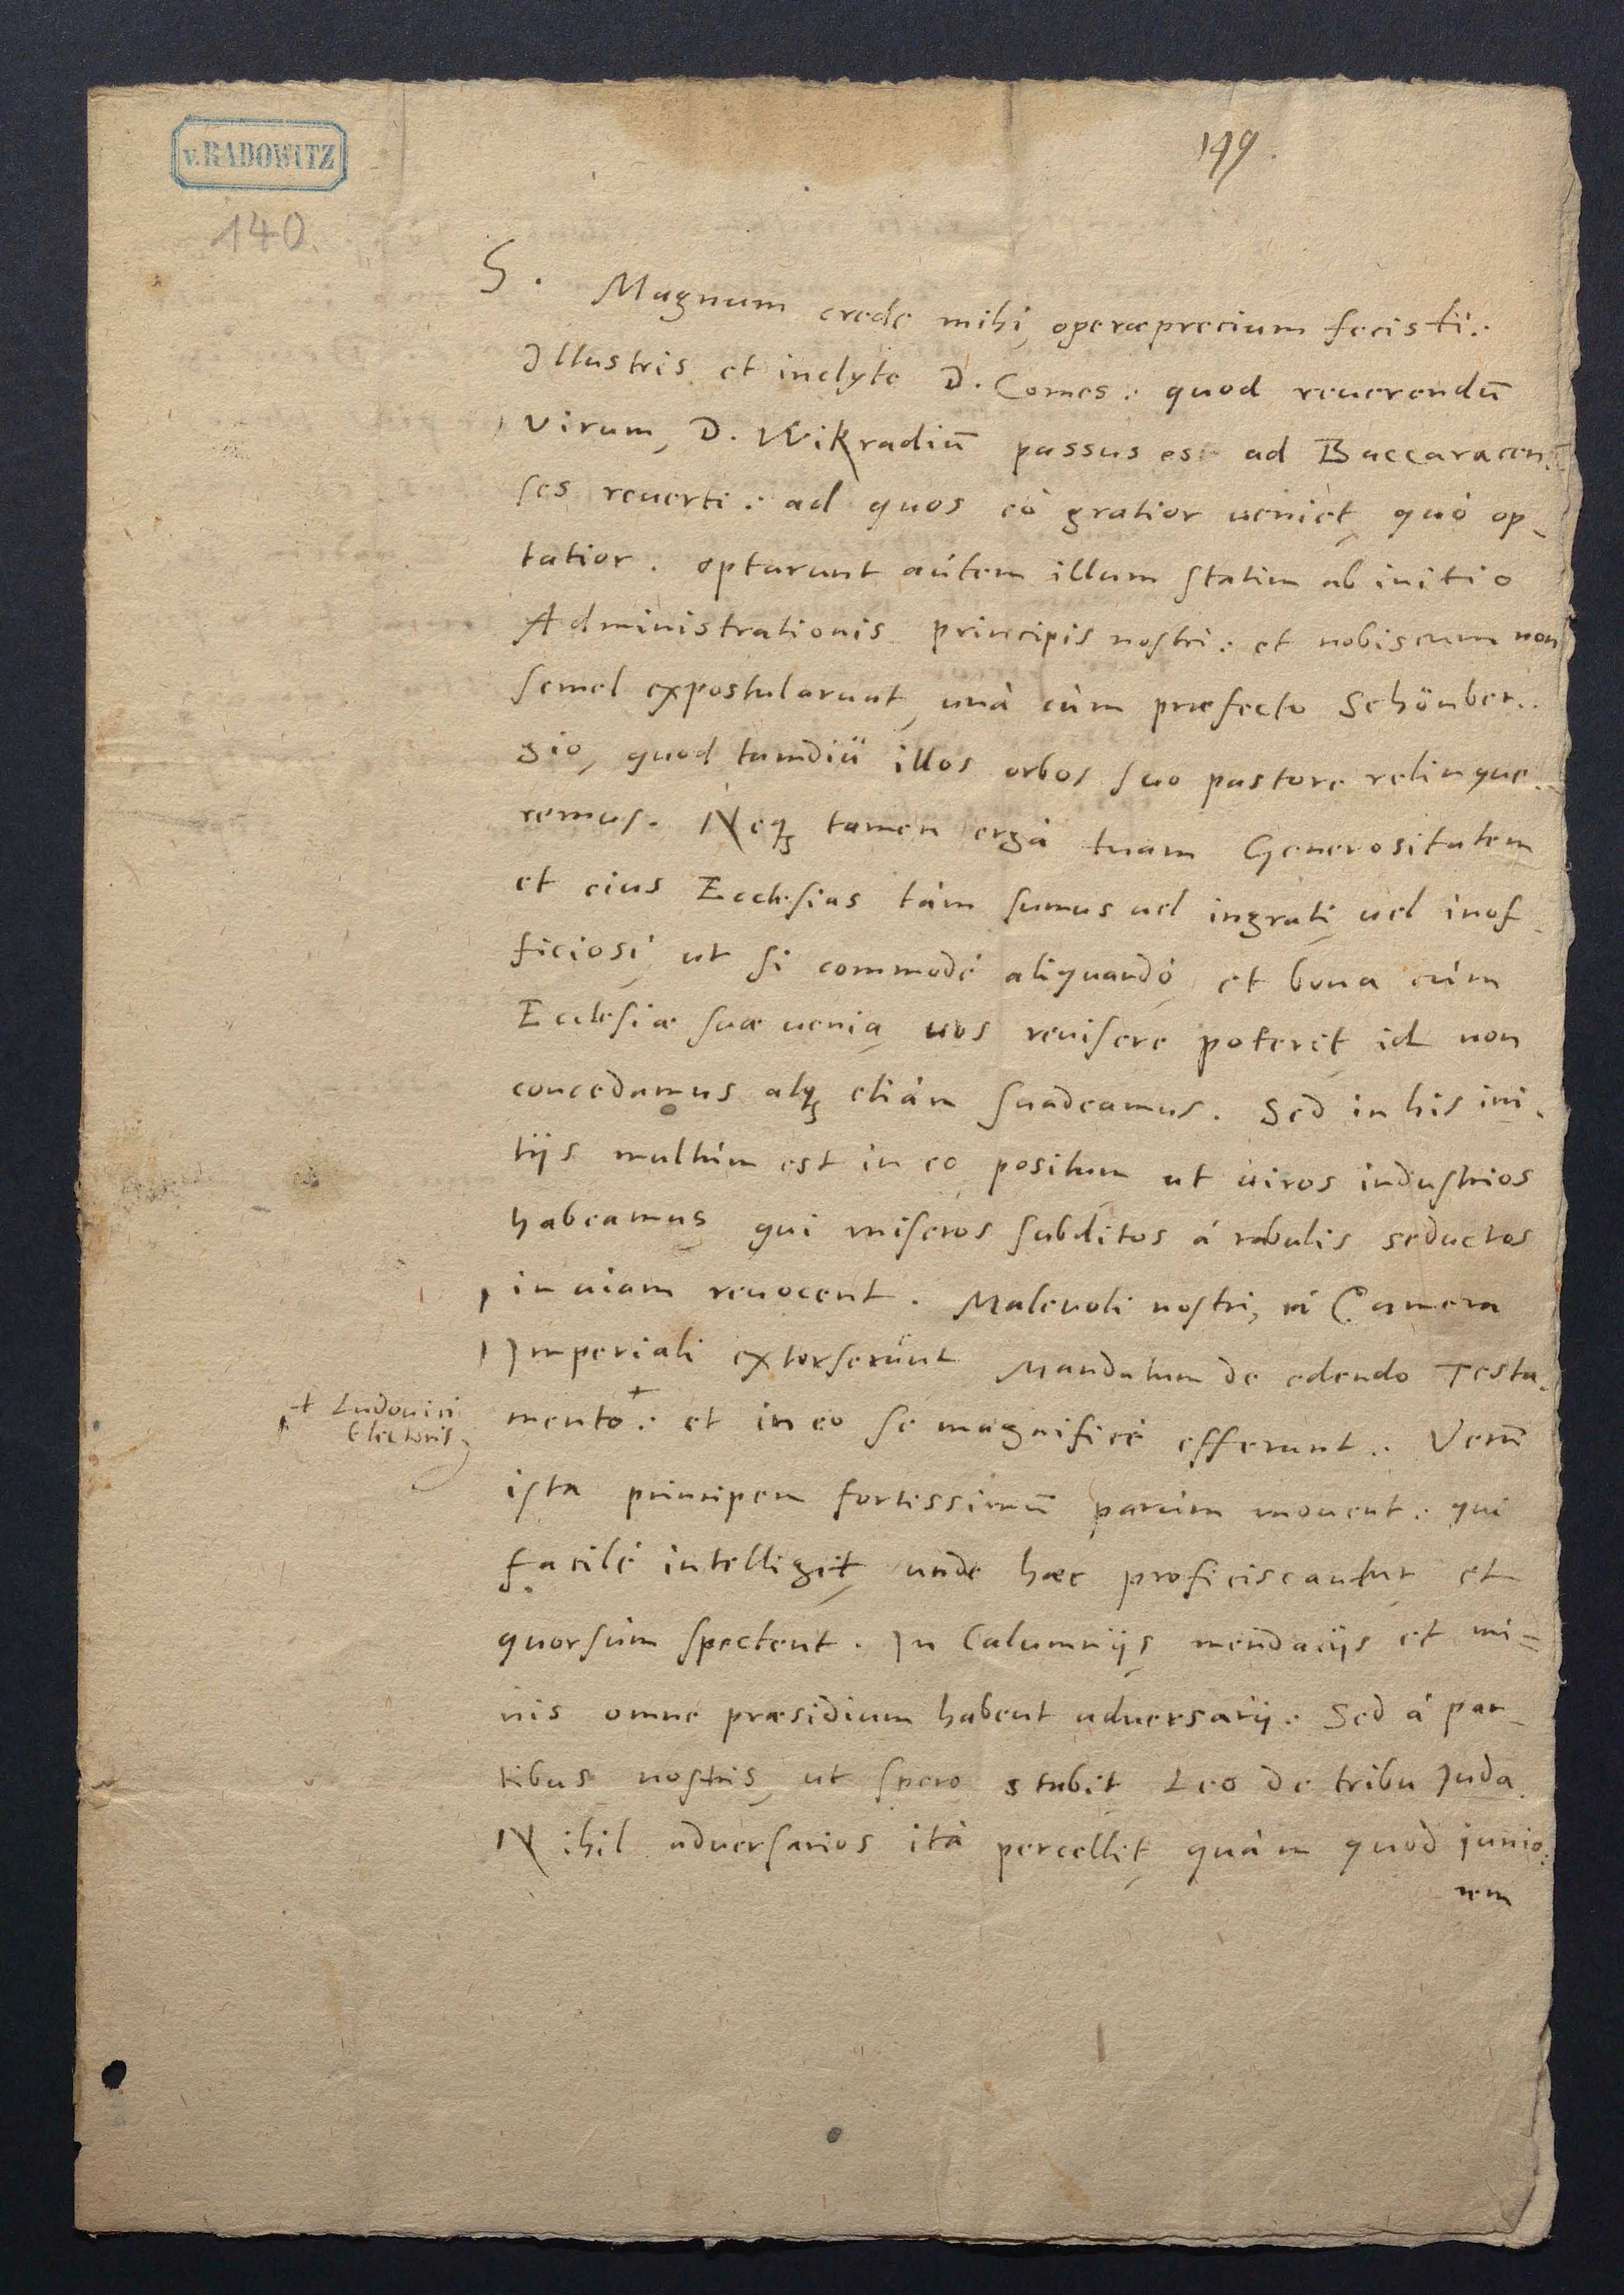 v. RADOWITZ
140.
149.
S. Magnum crede mihi, operæprecium fecisti:
Illustris et inclyte D. Comes: quod reuerendū
virum, D. Wikradiū passus es ad Baccaracen-
ses reuerti: ad quos eò gratior ueniet, quò op-
tatior. optarunt aútem illum statim ab initio
Administrationis principis nostri: et nobiscum non
semel expostularunt, unà cùm præfecto Schönber-
gio, quod tamdiú illos orbos suo pastore relinque-
remus. Neqꝫ tamen ergà tuam Generositatem
et eius Ecclesias tàm sumus uel ingrati, uel inof-
ficiosi, ut si commodè aliquandò, et bona cùm
Ecclesiæ suæ uenia, uos reuisere poterit, id non
concedamus, atqꝫ etiàm suadeamus. Sed in his ini-
tijs multùm est in eo positum, ut uiros industrios
habeamus, qui miseros subditos à rabulis seductos
in uiam reuocent. Maleuoli nostri, à Camera
Imperiali extorserúnt Mandatum de edendo Testa-
mento+: et in eo se magnificè efferunt. Verū
+ Ludouici
Electoris
ista principem fortissimū parùm mouent: qui
facilè intelligit, unde hæc proficiscantur et
quorsùm spectent. In Calumnijs, mendacijs et mi=
nis omne præsidium habent aduersarij: Sed à par-
tibus nostris, ut spero, stabit Leo de tribu Juda.
Nihil aduersarios ità percellit, quàm quod iunio-
rem